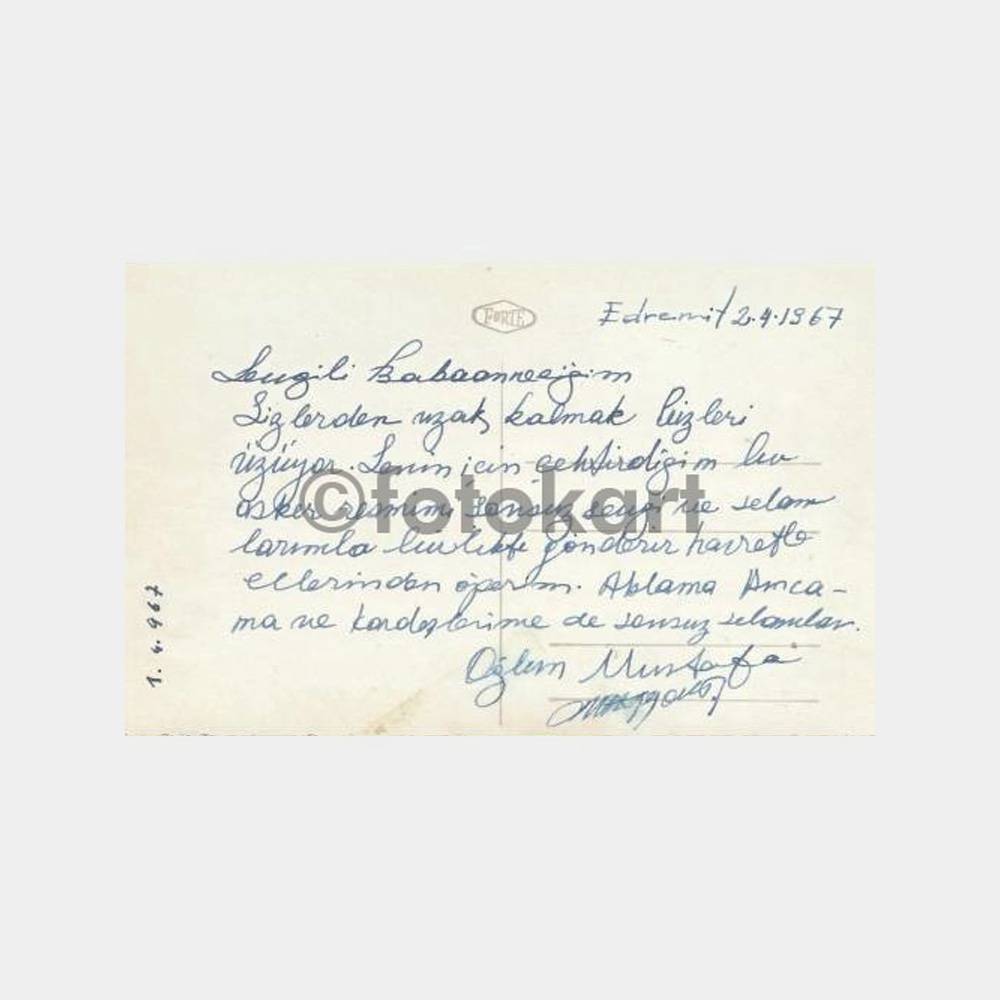 FORTE
Edremit/2.4.1967
Sevgili Babaanneciğim
Sizlerden uzak kalmak bizleri
üzüyor. Senin için çektirdiğim bu
asker resmimi sonsuz sevgi ve selam
larımla birlikte gönderir hasretle
ellerinden öperim. Ablama Amca-
ma ve kardeşlerime de sonsuz selamlar.
Oğlun Mustafa
1.4.967
©fotokart